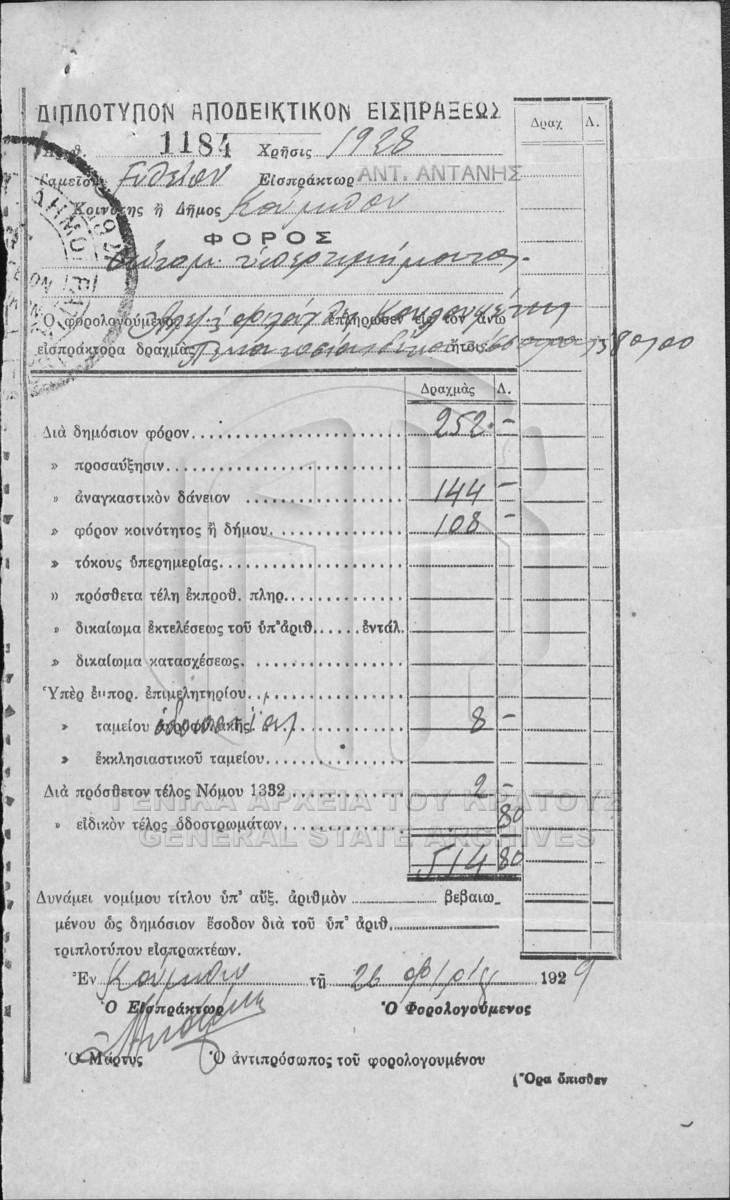 ΔΙΠΛΟΤΥΠΟΝ ΑΠΟΔΕΙΚΤΙΚΟΝ ΕΙΣΠΡΑΞΕΩΣ
Δραχ Λ.
Ἀριθ. 1184 Χρῆσις 1928
Ταμεῖον Γυθείου Εἰσπράκτωρ ΑΝΤ. ΑΝΤΑΝΗΣ
Κοινότης ἢ Δῆμος
ΦΟΡΟΣ
Ὁ φορολογούμενος ἐπλήρωσεν εἰς τὸν ἄνω
εἰσπράκτορα δραχμὰς ἤτοι
Δραχμὰς Λ.
Διὰ δημόσιον φόρον 252 –
» προσαύξησιν
» ἀναγκαστικὸν δάνειον 144 –
» φόρον κοινότητος ἢ δήμου 108 –
» τόκους ὑπερημερίας
» πρόσθετα τέλη ἐκπροθ. πληρ.
» δικαίωμα ἐκτελέσεως τοῦ ὑπ' ἀριθ. ἐντάλ.
» δικαίωμα κατασχέσεως.
Ὑπὲρ ἐμπορ. ἐπιμελητηρίου
» ταμείου 8 –
» ἐκκλησιαστικοῦ ταμείου
Διὰ πρόσθετον τέλος Νόμου 1332 2 –
ΓΕΝΙΚΑ ΑΡΧΕΙΑ ΤΟΥ ΚΡΑΤΟΥΣ
» εἰδικὸν τέλος ὁδοστρωμάτων 80
GENERAL STATE ARCHIVES
514 80
Δυνάμει νομίμου τίτλου ὑπ' αὔξ. ἀριθμὸν βεβαιω-
μένου ὡς δημόσιον ἔσοδον διὰ τοῦ ὑπ' ἀριθ.
τριπλοτύπου εἰσπρακτέων.
Ἐν τῇ 26 1929
Ὁ Εἰσπράκτωρ Ὁ Φορολογούμενος
Ὁ Μάρτυς Ὁ ἀντιπρόσωπος τοῦ φορολογουμένου
(Ὅρα ὄπισθεν